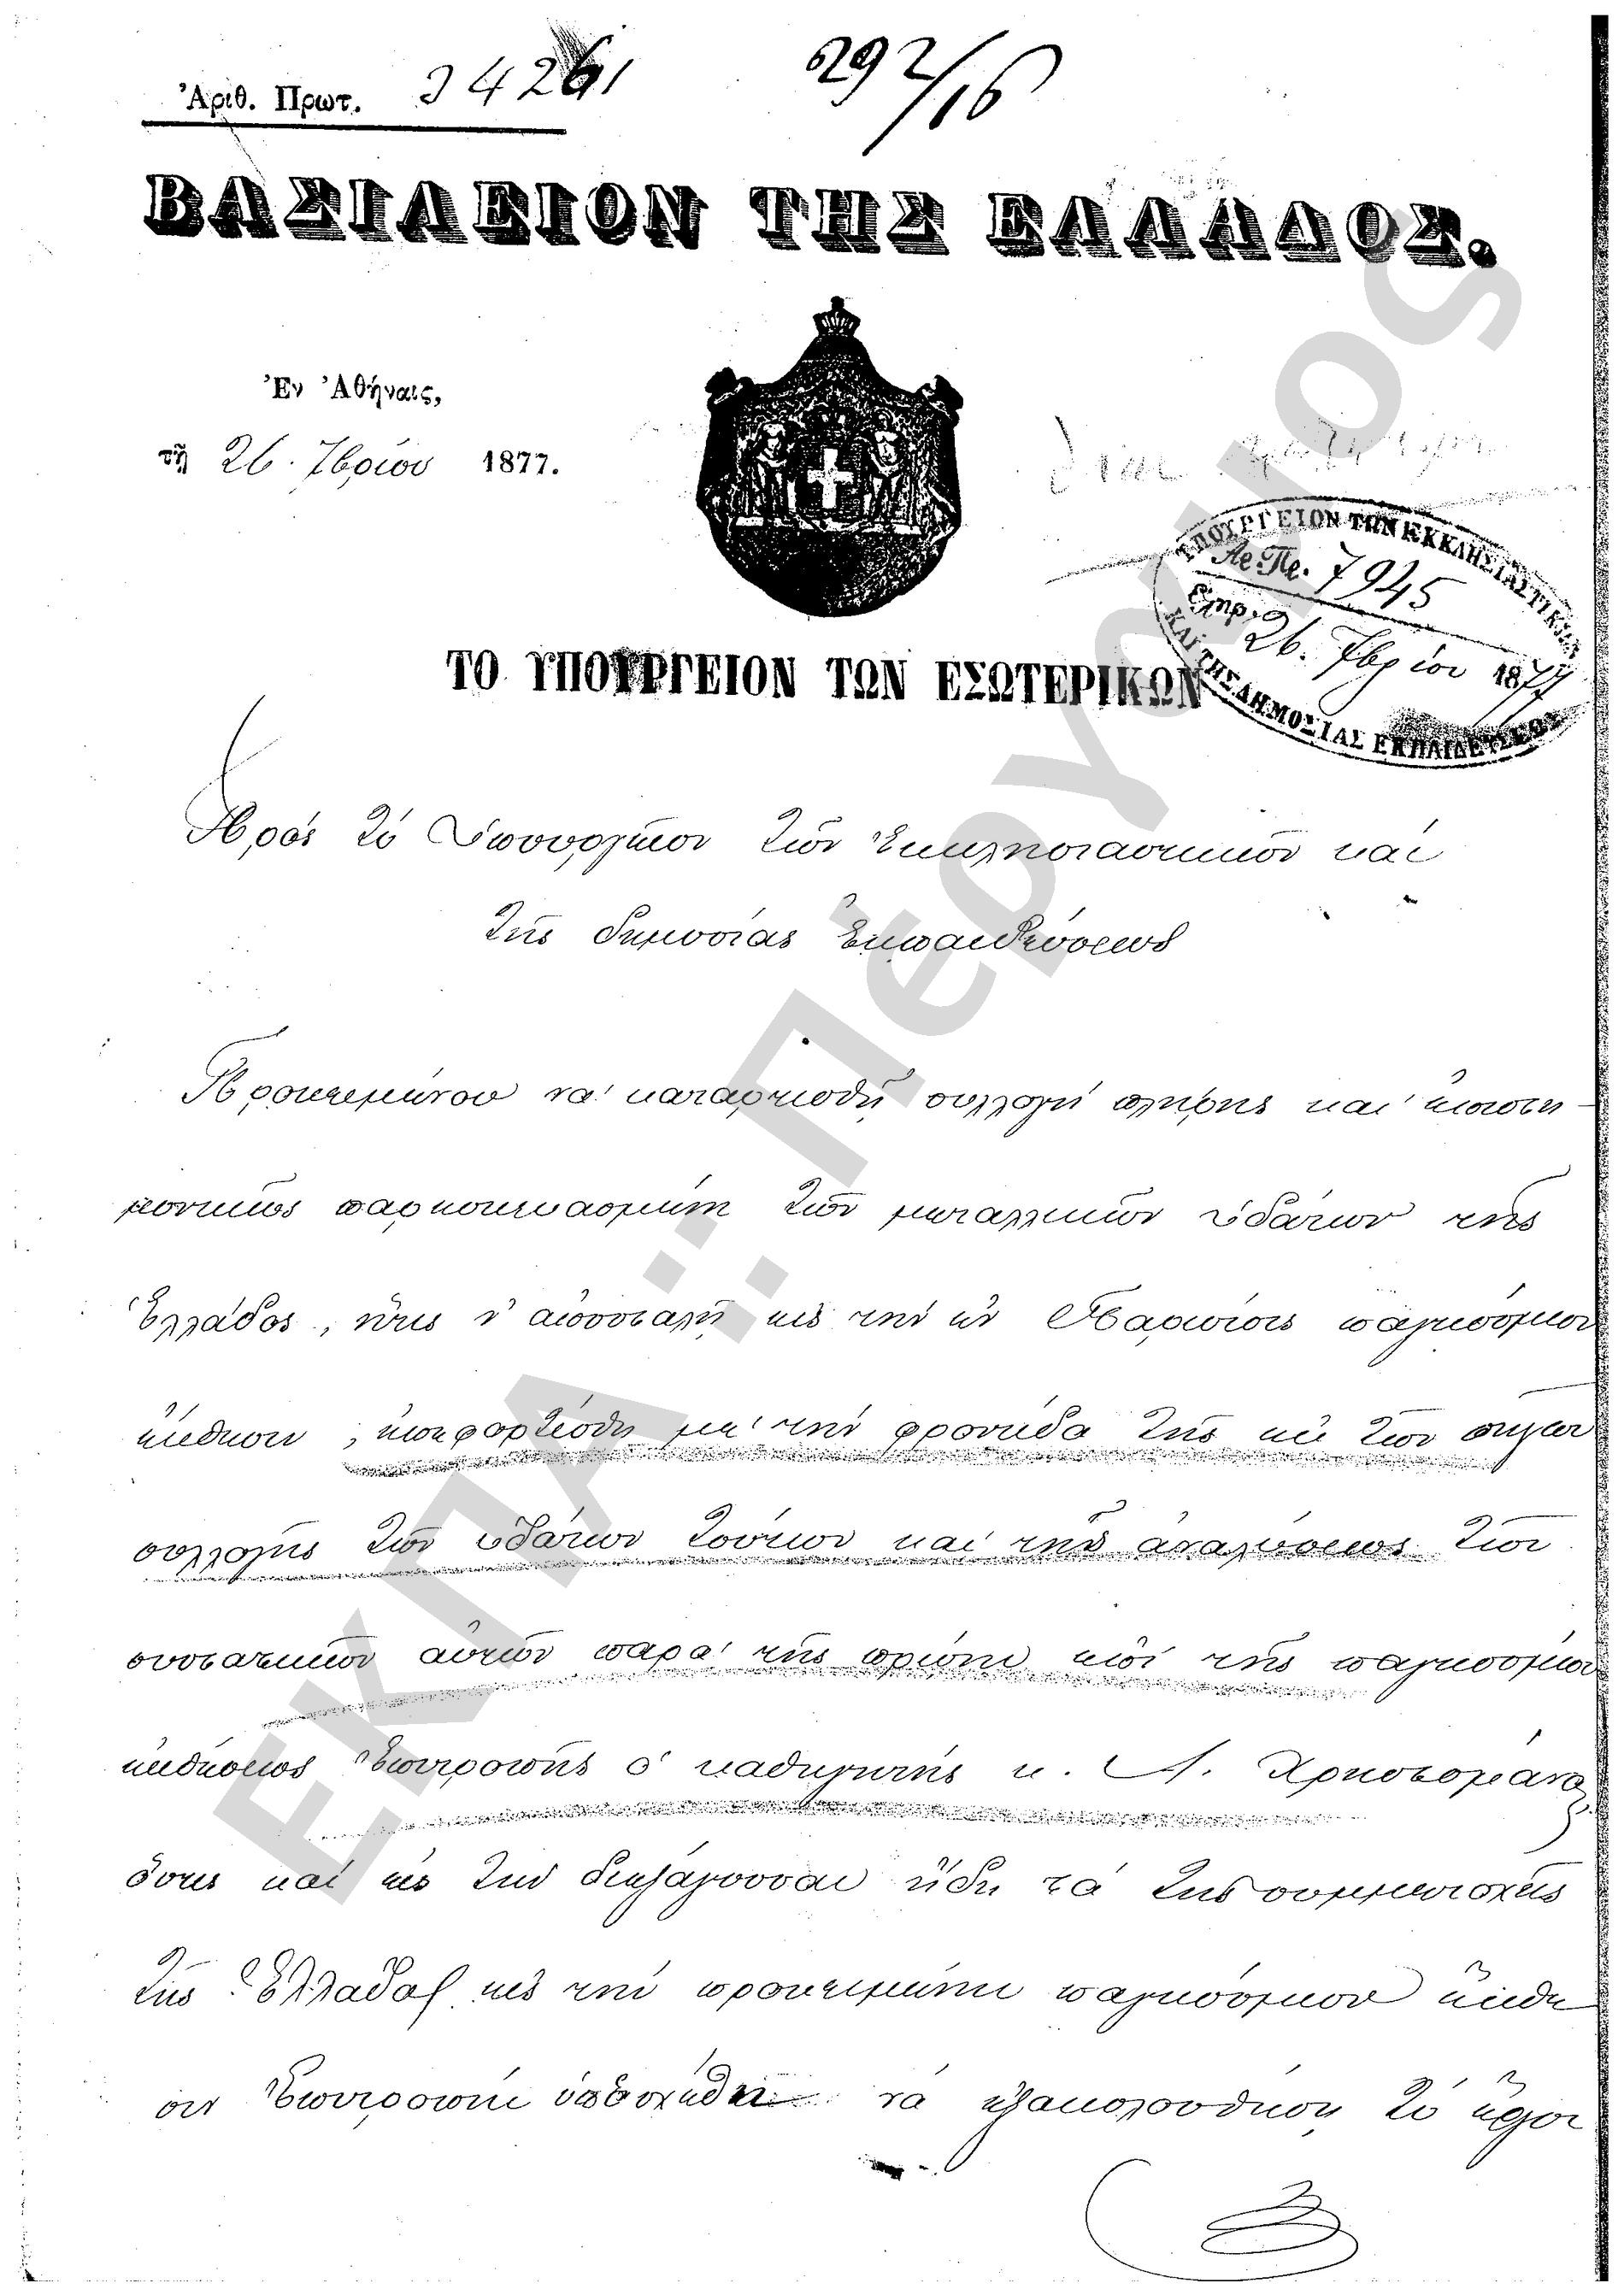 Ἀριθ. Πρωτ. 34261
292/16
ΒΑΣΙΛΕΙΟΝ ΤΗΣ ΕΛΛΑΔΟΣ.
Ἐν Ἀθήναις,
τῇ 26. 7βρίου 1877.
ΥΠΟΥΡΓΕΙΟΝ ΤΩΝ ΕΚΚΛΗΣΙΑΣΤΙΚΩΝ
Ἀρ. Πρ. 7945
26. 7βρίου 1877
ΚΑΙ ΤΗΣ ΔΗΜΟΣΙΑΣ ΕΚΠΑΙΔΕΥΣΕΩΣ
ΤΟ ΥΠΟΥΡΓΕΙΟΝ ΤΩΝ ΕΣΩΤΕΡΙΚΩΝ
Πρὸς τὸ Ὑπουργεῖον τῶν Ἐκκλησιαστικῶν καὶ
τῆς δημοσίας ἐκπαιδεύσεως
Προκειμένου νὰ καταρτισθῇ συλλογὴ πλήρης καὶ ἐπιστη-
μονικῶς παρεσκευασμένη τῶν μεταλλικῶν ὑδάτων τῆς
Ἑλλάδος, ἥτις θ' ἀποσταλῇ εἰς τὴν ἐν Παρισίοις παγκόσμιον
ἔκθεσιν, ἐπεφορτίσθη μὲ τὴν φροντίδα τῆς ἐκ τῶν πηγῶν
συλλογῆς τῶν ὑδάτων τούτων καὶ τῆς ἀναλύσεως τῶν
συστατικῶν αὐτῶν παρὰ τῆς πρώην ἐπὶ τῆς παγκοσμίου
ἐκθέσεως Ἐπιτροπῆς ὁ καθηγητὴς κ. Α. Χρηστομάνος
ὅστις καὶ εἰς τὴν διεξάγουσαν ἤδη τὰ τῆς συμμετοχῆς
τῆς Ἑλλάδος εἰς τὴν προκειμένην παγκόσμιον ἔκθε
σιν Ἐπιτροπὴν ὑπεσχέθη νὰ ἐξακολουθήσῃ τὸ ἔργον
ΕΚΠΑ :: Πέργαμος